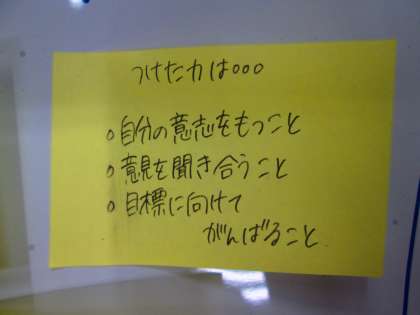 つけた力は○○○
○自分の意志をもつこと
○意見を聞き合うこと
○目標に向けて
がんばること